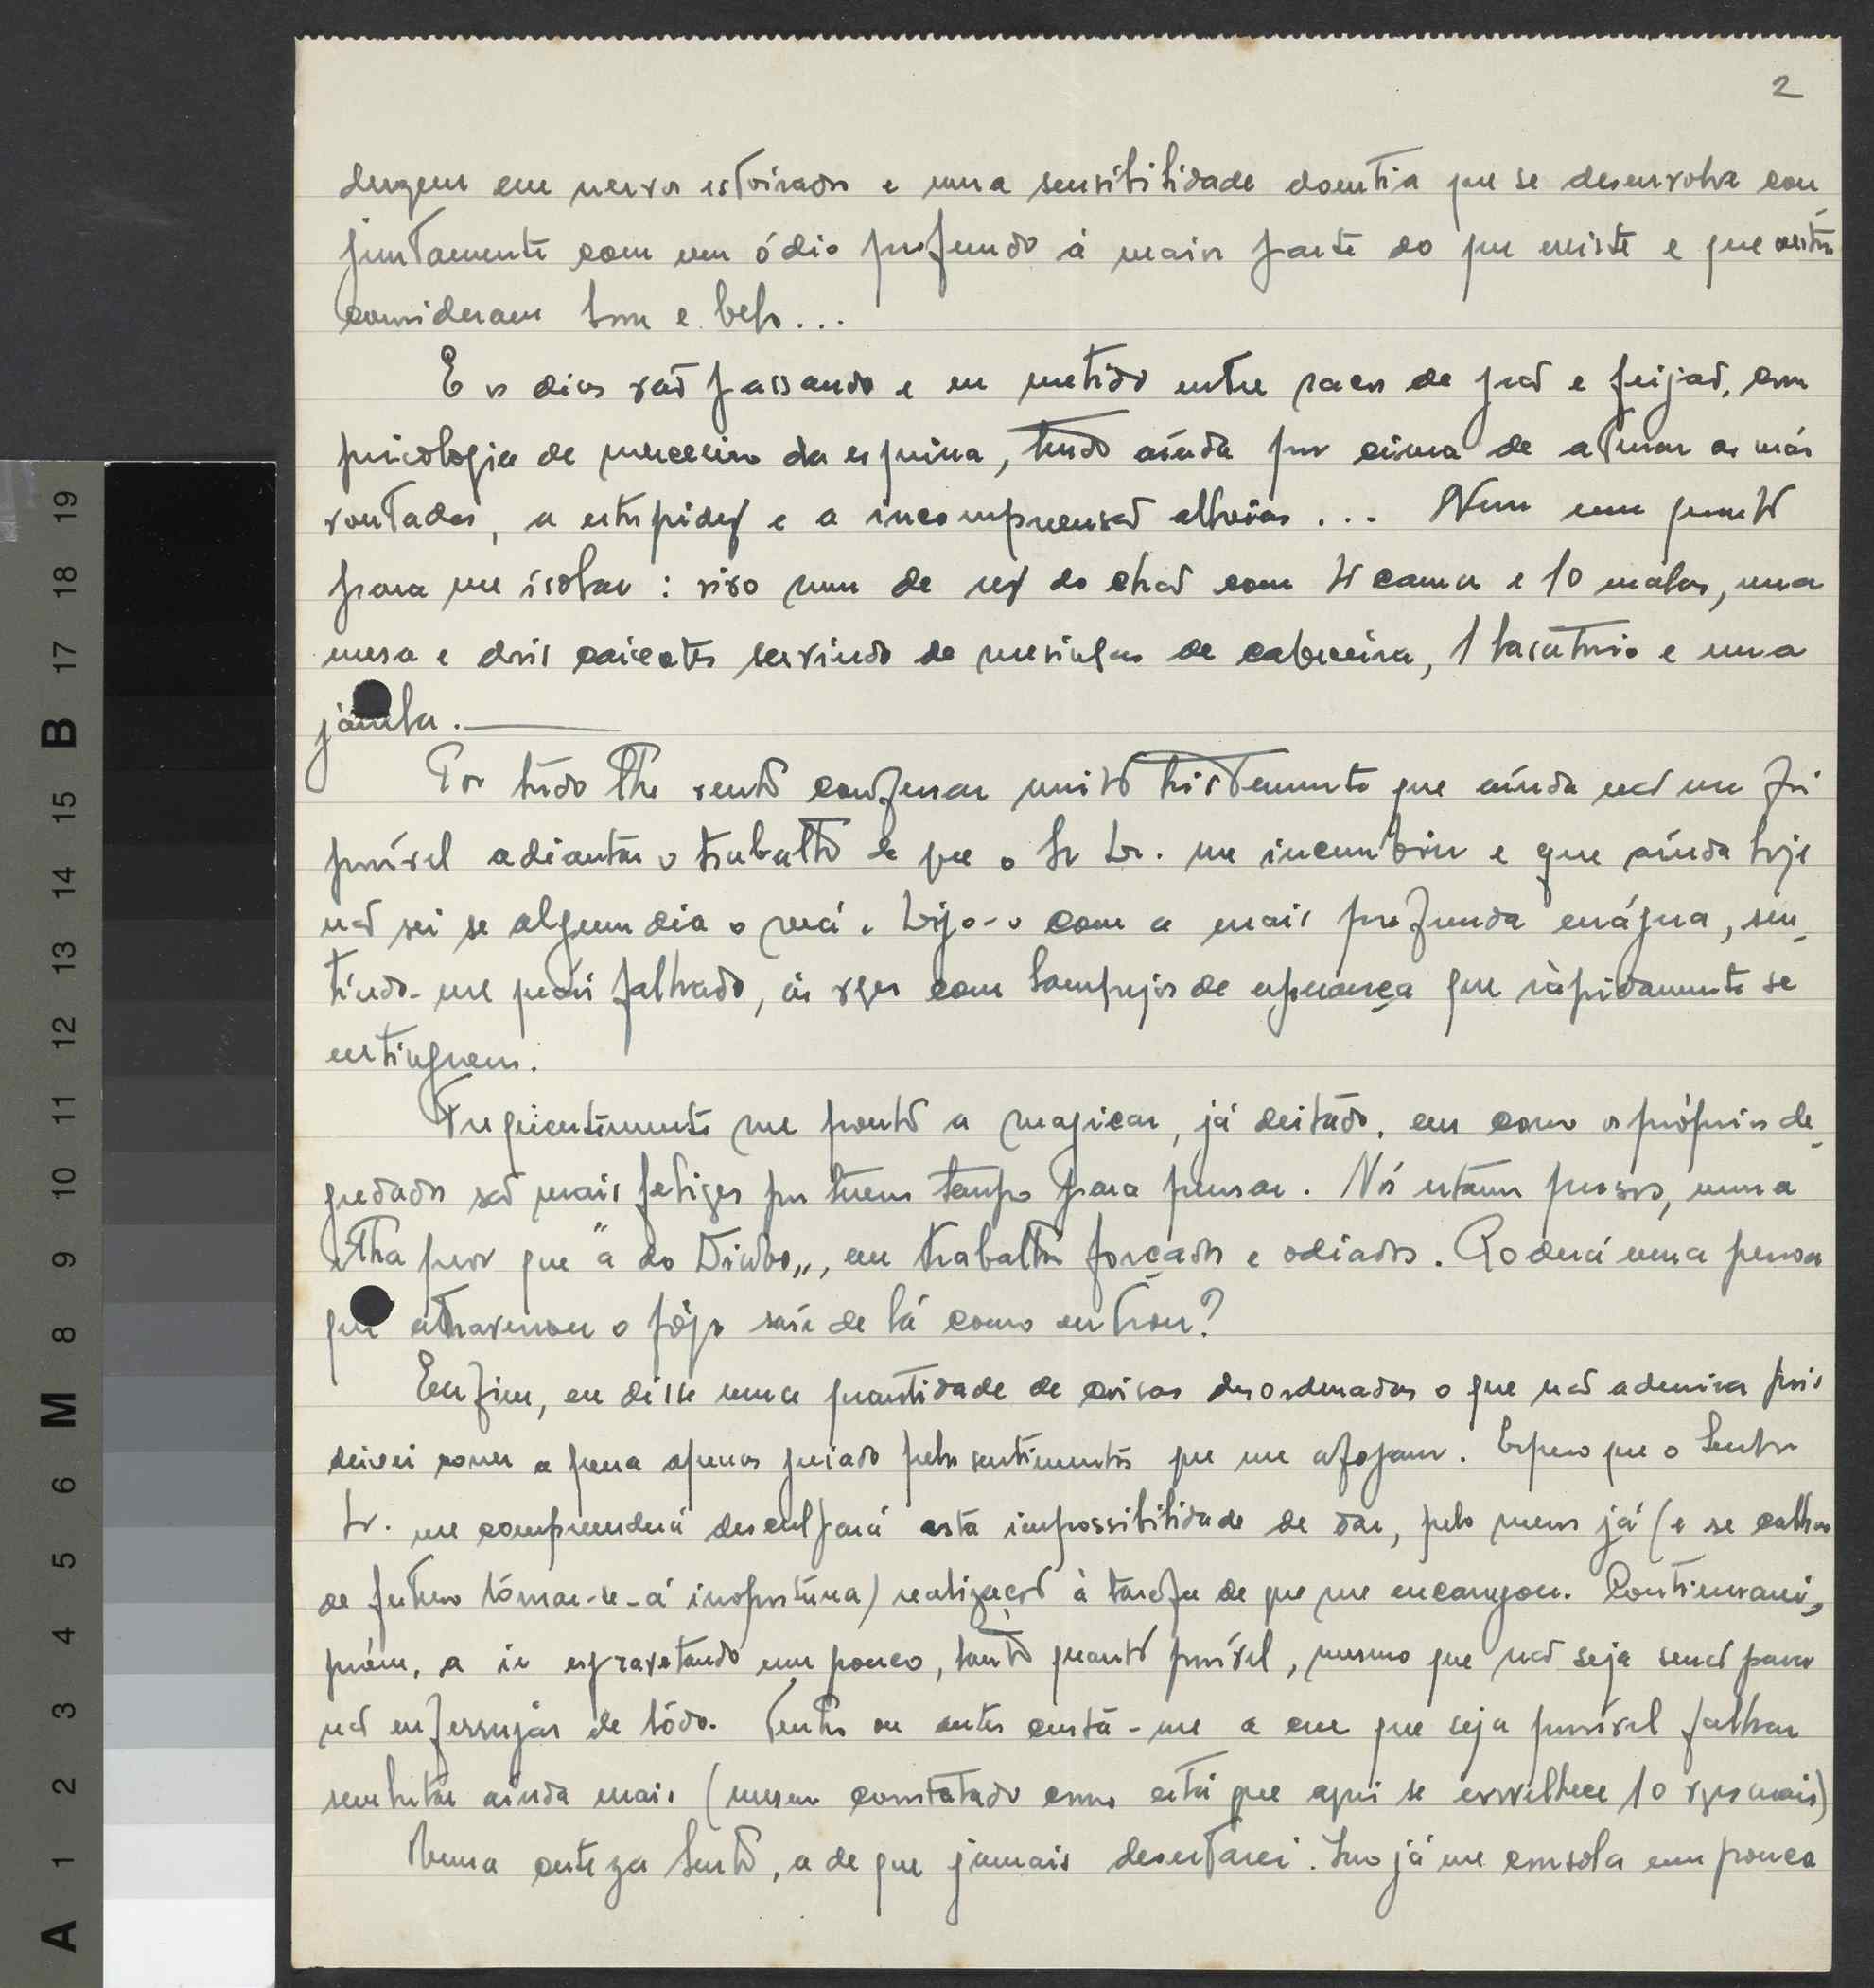 2
duzem em nervos estoirados e uma sensibilidade doentia que se desenvolve con
juntamente com um ódio profundo à maior parte do que existe e que outros
consideram bom e belo...
E os dias vão passando e eu metido entre sacos de grão e feijão, com
psicologia de merceeiro da esquina, tendo ainda por cima de aturar as más
vontades, a estupidez e a incompreensão alheias... Nem um quarto
para me isolar: vivo num de rez do chão com 4 camas e 10 malas, uma
mesa e dois caixotes servindo de mesinhas de cabeceira, 1 lavatório e uma
janela.
Por tudo lhe tenho confessar muito tristemente que ainda não me foi
possível adiantar o trabalho de que o Sr Dr. me incumbiu e que ainda hoje
não sei se algum dia o verá. Digo-o com a mais profunda mágua, sen-
tindo-me quási falhado, às vezes com lampejos de esperança que ràpidamente se
extinguem.
Freqùentemente me ponho a magicar, já deitado, em como os próprios de-
gredados são mais felizes por terem tempo para pensar. Nós estamos presos, numa
ilha peor que "a do Diabo", em trabalhos forçados e odiados. Poderá uma pessoa
que atravessou o fôgo saír de lá como entrou?
Enfim, eu disse uma quantidade de coisas desordenadas o que não admira pois
deixei correr a pena apenas guiado pelos sentimentos que me afogam. Espero que o Senhor
Dr. me compreenderá desculpará esta impossibilidade de dar, pelo menos já (e se calhar
de futuro tórnar-se-á inoportúna) realização à tarefa de que me encarregou. Continuarei,
porém, a ir esgravetando um pouco, tanto quanto possível, mesmo que não seja senão para
não enferrujar de tôdo. Tenho ou antes custa-me a crer que seja possível falhar
senão ainda mais (mesmo constatado como está que aqui se envelhece 10 vezes mais)
Numa certeza tenho, a de que jamais desertarei. Isso já me consola um pouco